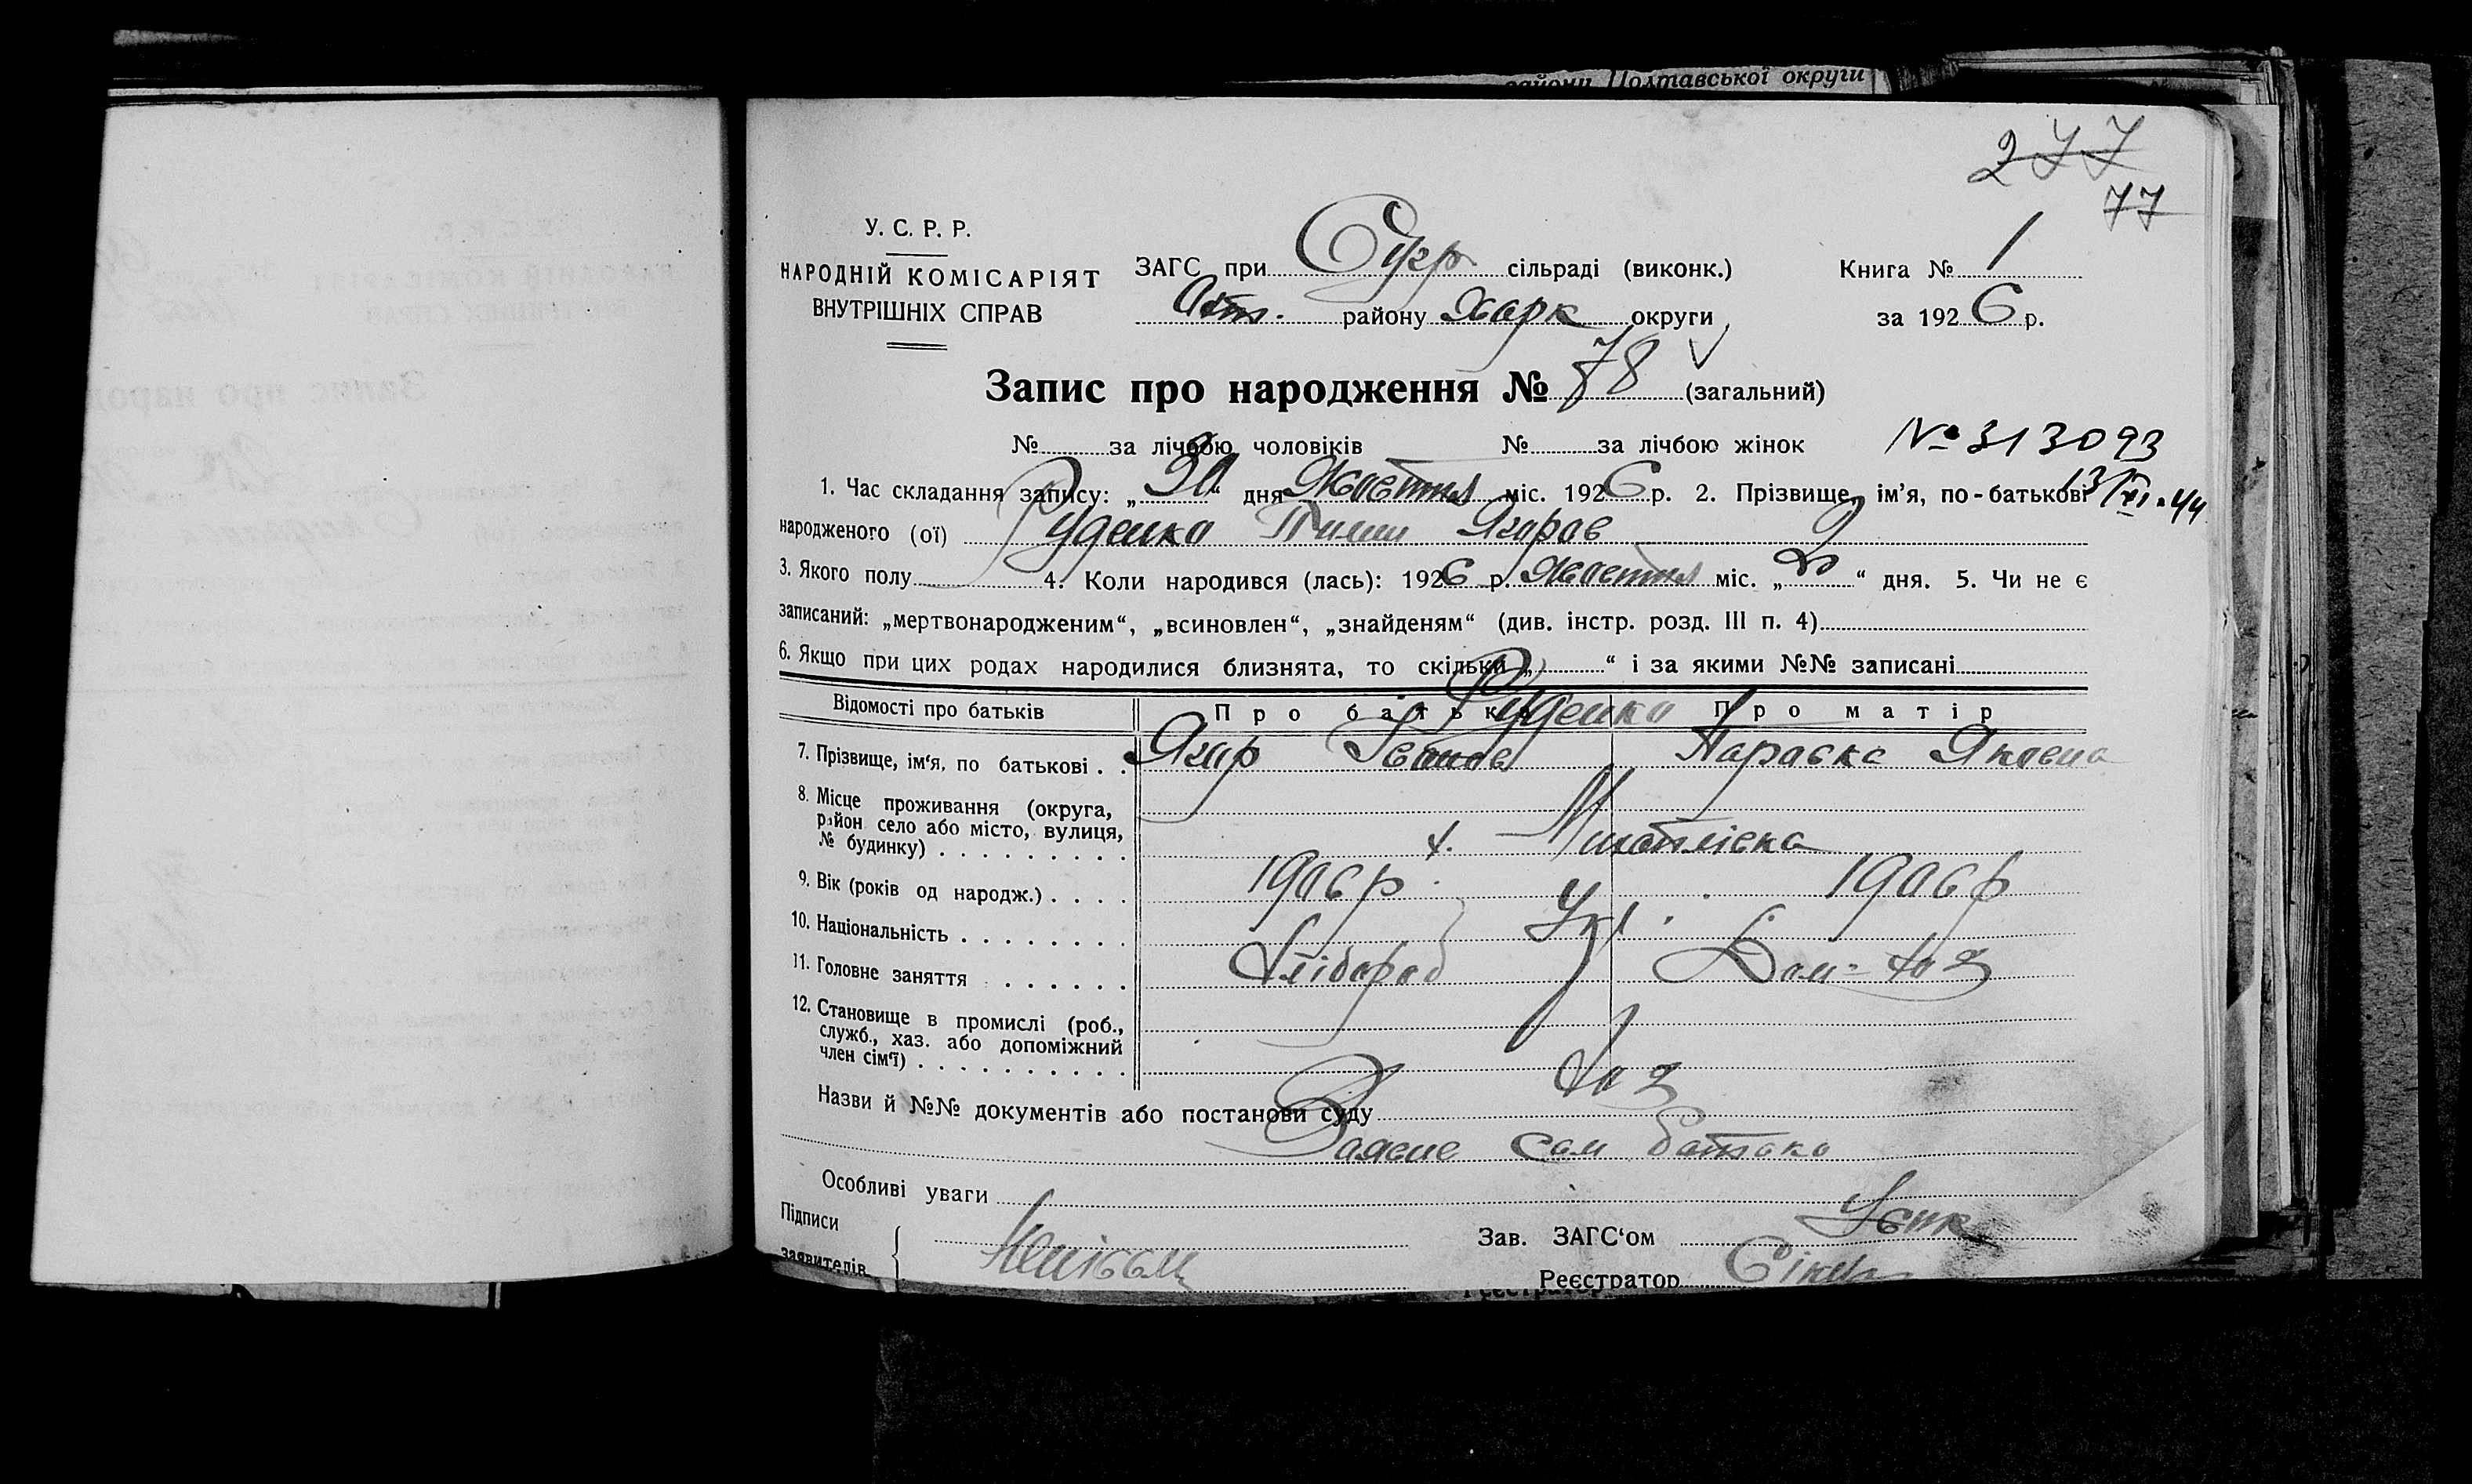 райони Полтавської округи
277
77
У. С. Р. Р.
НАРОДНІЙ КОМІСАРІЯТ
ВНУТРІШНІХ СПРАВ
ЗАГС при сільраді (виконк.)
району Харк округи
Книга № 1
за 1926 р.
Запис про народження № 78 (загальний)
№ за лічбою чоловіків № за лічбою жінок
№ 313093
13/XI-44
1. Час складання запису: „30“ дня Жовтня міс. 1926 р. 2. Прізвище, ім’я, по-батькові
народженого (ої) Руденко
3. Якого полу 4. Коли народився (лась): 1926 р. Жовтня міс. „ “ дня. 5. Чи не є
записаний: „мертвонародженим“, „всиновлен“, „знайденям“ (див. інстр. розд. III п. 4)
6. Якщо при цих родах народилися близнята, то скільки „ “ і за якими №№ записані
Відомості про батьків Про батька Про матір
Руденко
7. Прізвище, ім‘я, по батькові . . Іванов Параска Яковна
8. Місце проживання (округа,
район село або місто, вулиця,
№ будинку)
9. Вік (років од народж.) 1906 р 1906 р
10. Національність Укр.
11. Головне заняття Хлібороб Дом-хоз
12. Становище в промислі (роб.,
служб., хаз. або допоміжний
член сім‘ї) хоз
Назви й №№ документів або постанови суду
Заявив сам батько
Особливі уваги
Підписи
заявителів
Зав. ЗАГС‘ом
Реєстратор